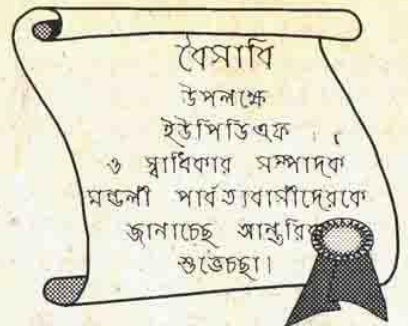 বৈসাবি
উপলক্ষে
ইউপিডিএফ
ও স্বাধিকার সম্পাদক
মন্ডলী পার্বত্যবাসীদেরকে
জানাচ্ছে আন্তরিক
শুভেচ্ছা।